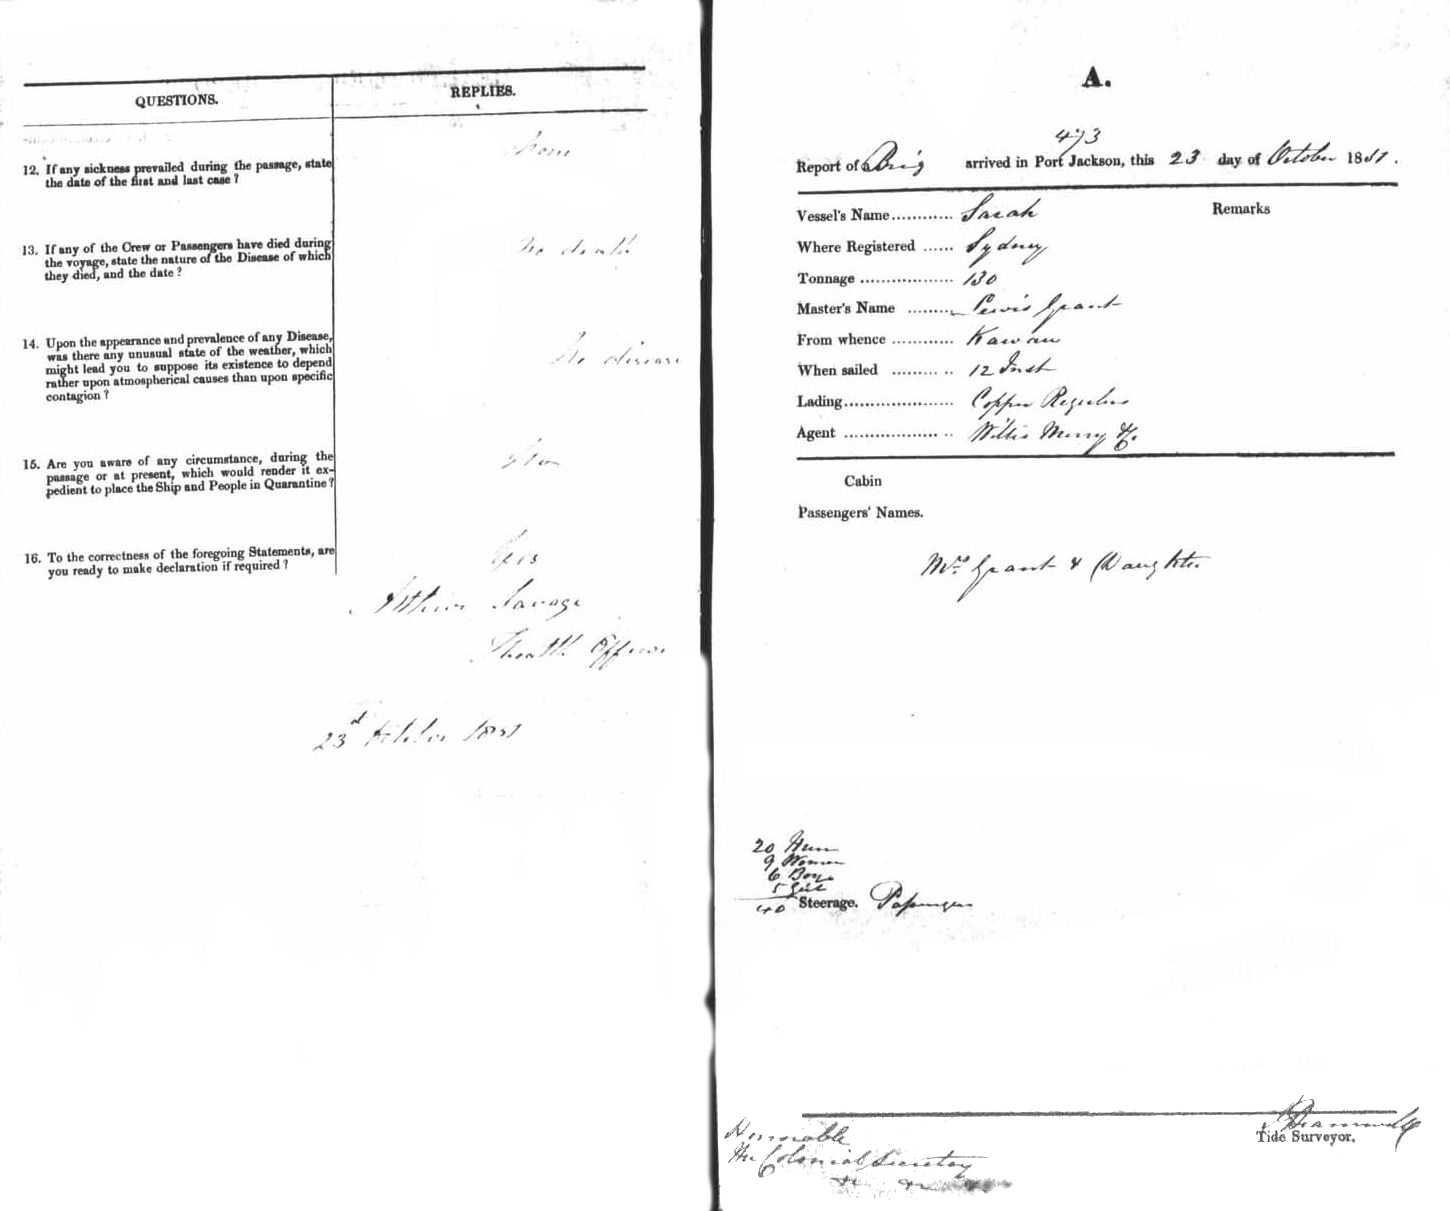 QUESTIONS.
REPLIES.
12. If any sickness prevailed during the passage, state
the date of the first and last case?
13. If any of the Crew or Passengers have died during
the voyage, state the nature of the Disease of which
they died, and the date?
No death
14. Upon the appearance and prevalence of any Disease,
was there any unusual state of the weather, which
might lead you to suppose its existence to depend
rather upon atmospherical causes than upon specific
contagion?
No disease
15. Are you aware of any circumstance, during the
passage or at present, which would render it ex-
pedient to place the Ship and People in Quarantine?
16. To the correctness of the foregoing Statements, are
you ready to make declaration if required?
Yes
Arthur Savage
Health Officer
23d October 1851
A.
473
Report of Brig arrived in Port Jackson, this 23 day of October 1851.
Vessel's Name............ Sarah
Remarks
Where Registered ...... Sydney
Tonnage .................. 130
Master's Name ......... Lewis Grant
From whence ............ Kawau
When sailed ............ 12 Inst
Lading...................... Copper Regulus
Agent .................... Willis Merry & Co
Cabin
Passengers' Names.
Mrs Grant & Daughter
20 Men
9 Women
6 Boys
5 Girls
40 Steerage. Passengers
Tide Surveyor.
Honorable
The Colonial Secretary